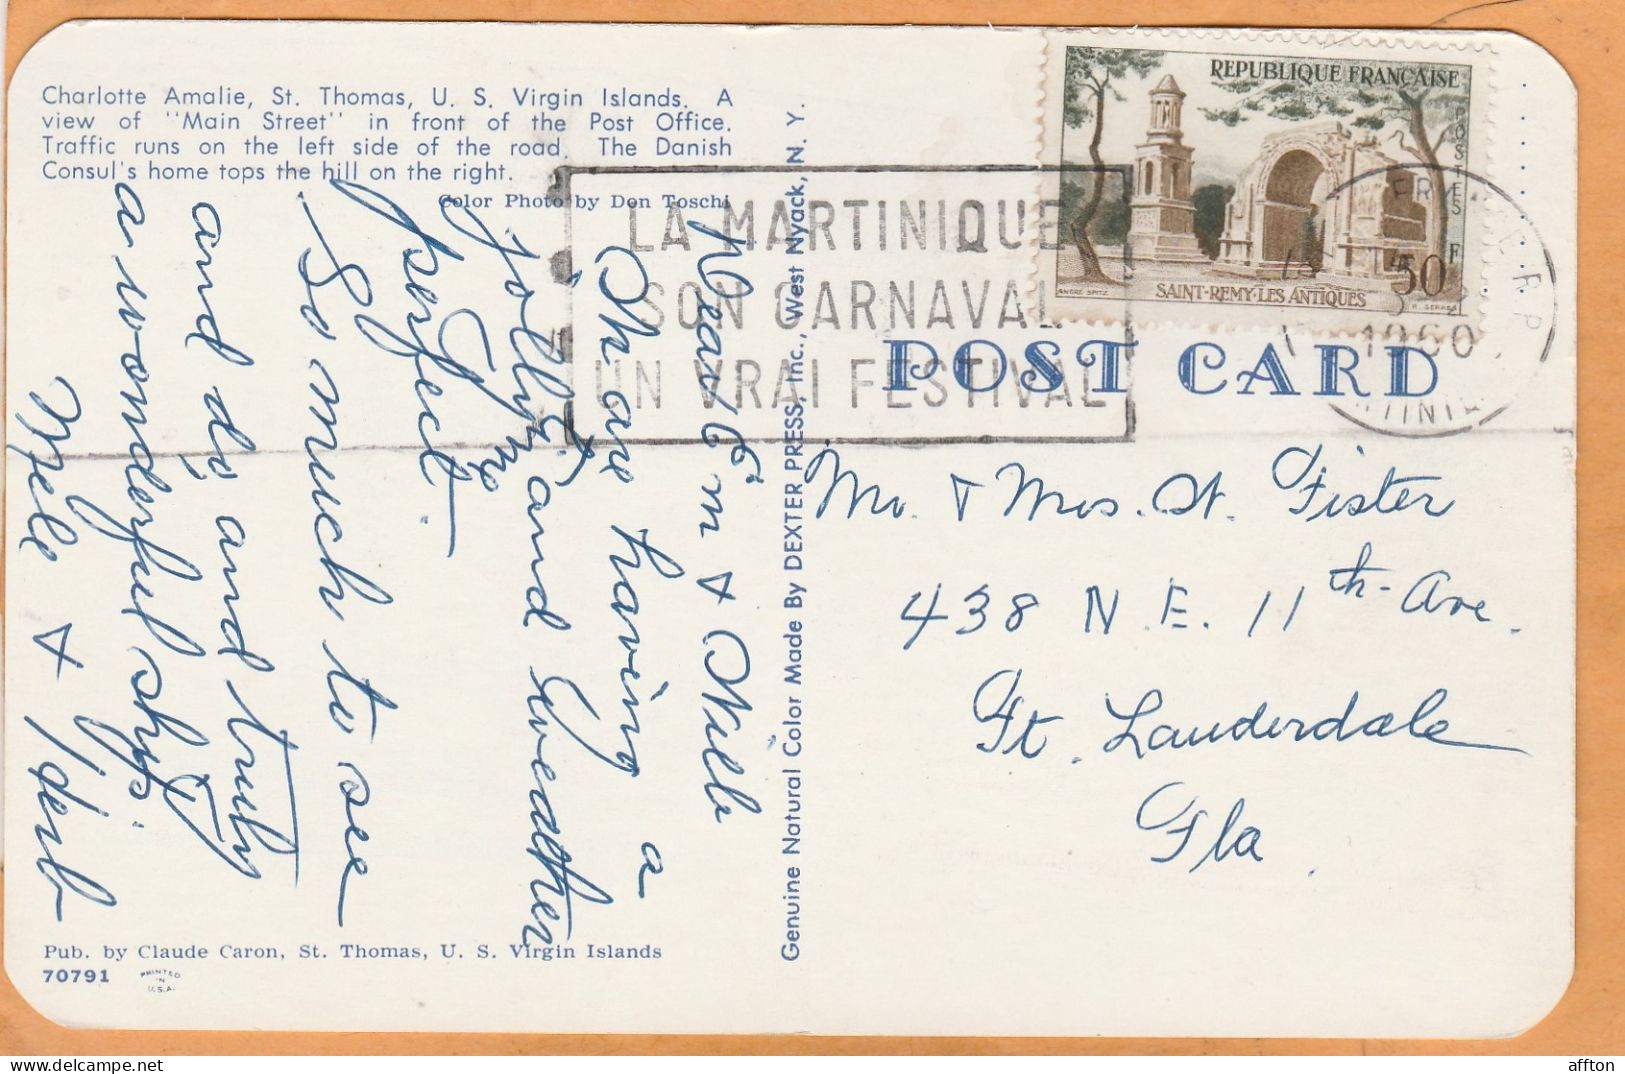 Charlotte Amalie, St. Thomas, U. S. Virgin Islands. A
view of "Main Street" in front of the Post Office.
Traffic runs on the left side of the road. The Danish
Consul's home tops the hill on the right.
Color Photo by Don Toschi
Dear &
Are having a
jolly time and weather
perfect.
So much to see
and do and truly
a wonderful ship.
&
Pub. by Claude Caron, St. Thomas, U. S. Virgin Islands
70791
PRINTED
IN
U.S.A.
Genuine Natural Color Made By DEXTER PRESS, Inc., West Nyack, N. Y.
LA MARTINIQUE
SON CARNAVAL
UN VRAI FESTIVAL
REPUBLIQUE FRANÇAISE
POSTES
50 F
SAINT-REMY-LES ANTIQUES
ANDRE SPITZ
R. SERRES
1960
POST CARD
Mr. & Mrs. St. Fister
438 N.E. 11th Ave.
Ft. Lauderdale
Fla.
affton